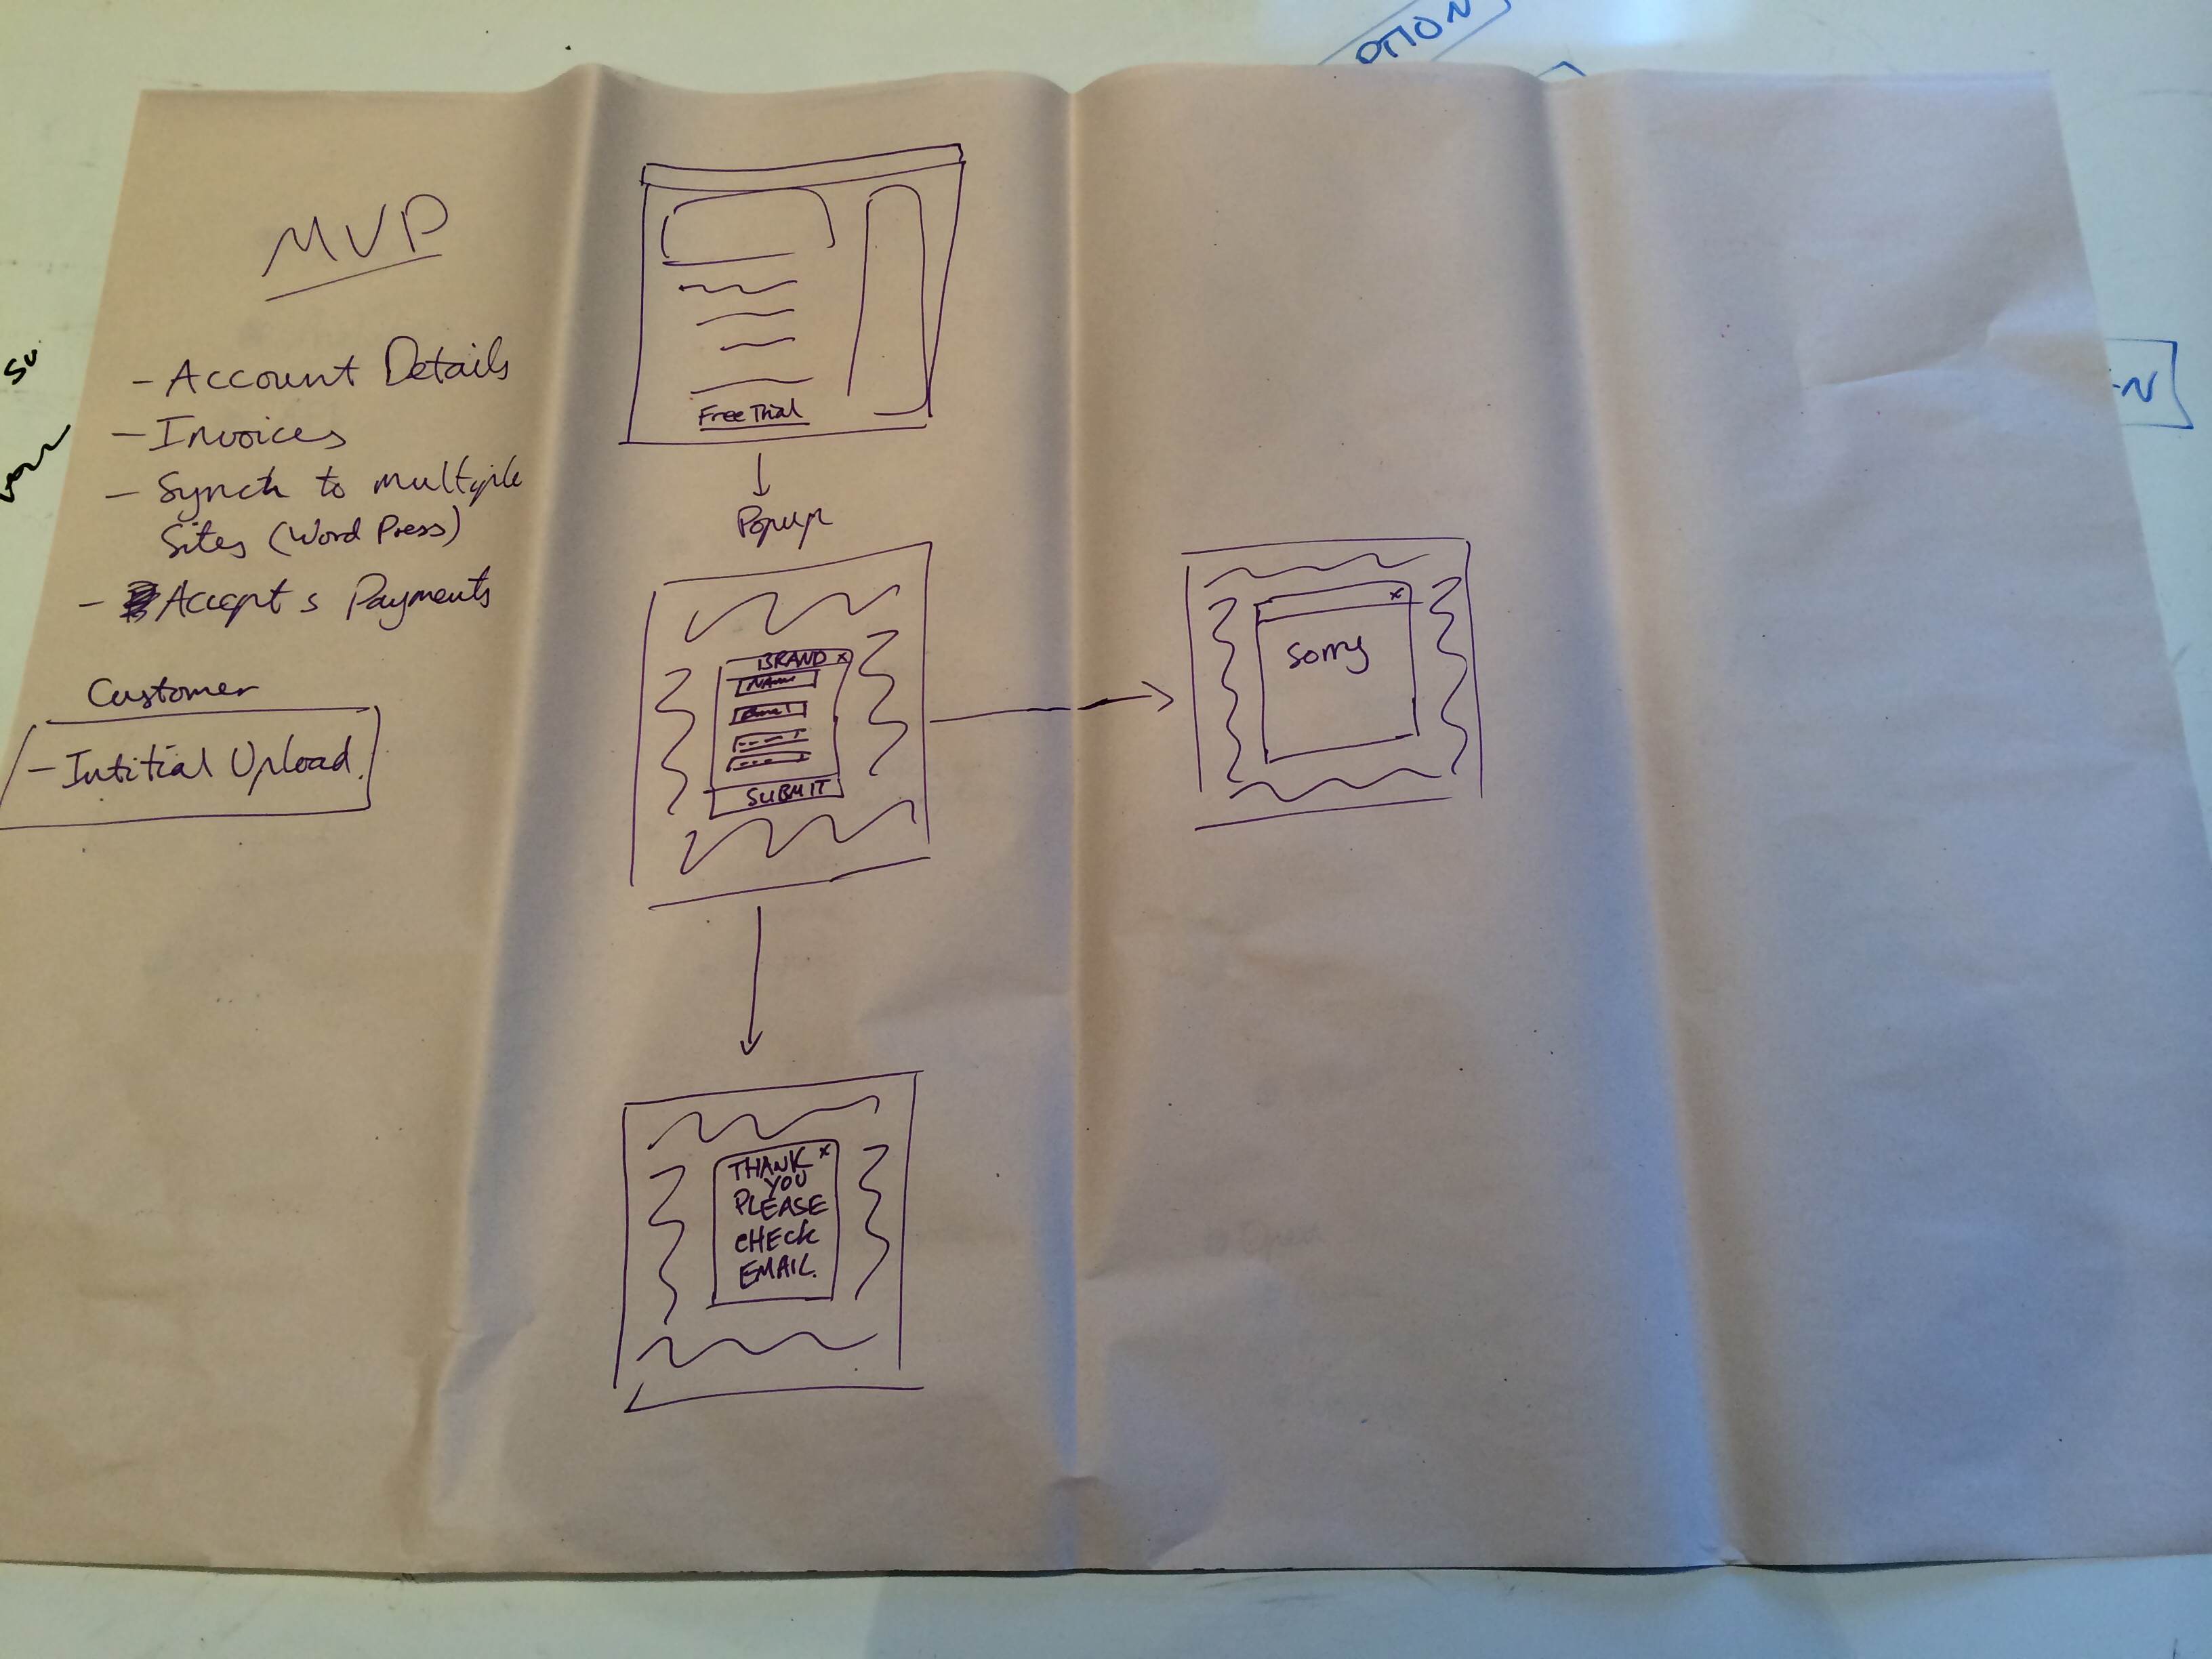 MVP
- Account Details
- Invoices
- Synch to multiple
Sites (Word Press)
- Accepts Payments
Customer
- Intitial Upload.
Free Trial
Popup
BRAND x
Name
Email
SUBMIT
x
Sorry
THANK x
YOU
PLEASE
CHECK
EMAIL.